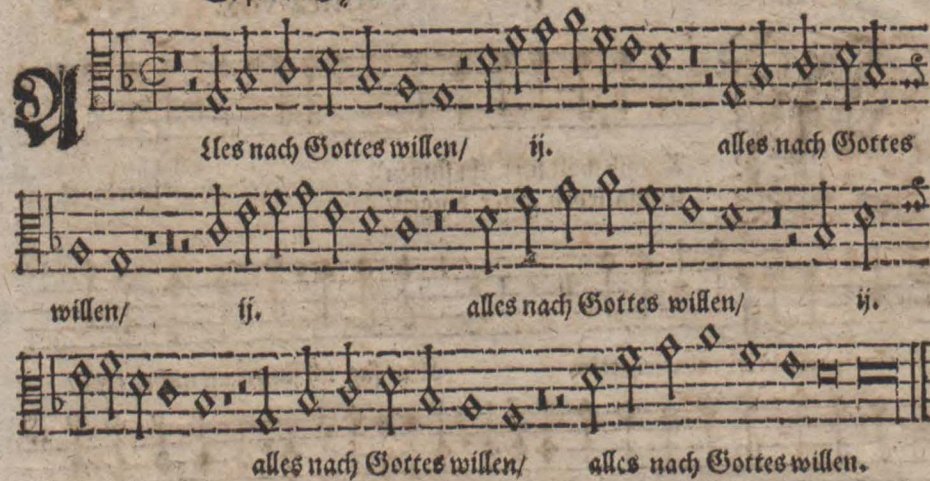 Alles nach Gottes willen/ ij. alles nach Gottes
willen/ ij. alles nach Gottes willen/ ij.
alles nach Gottes willen/ alles nach Gottes willen.